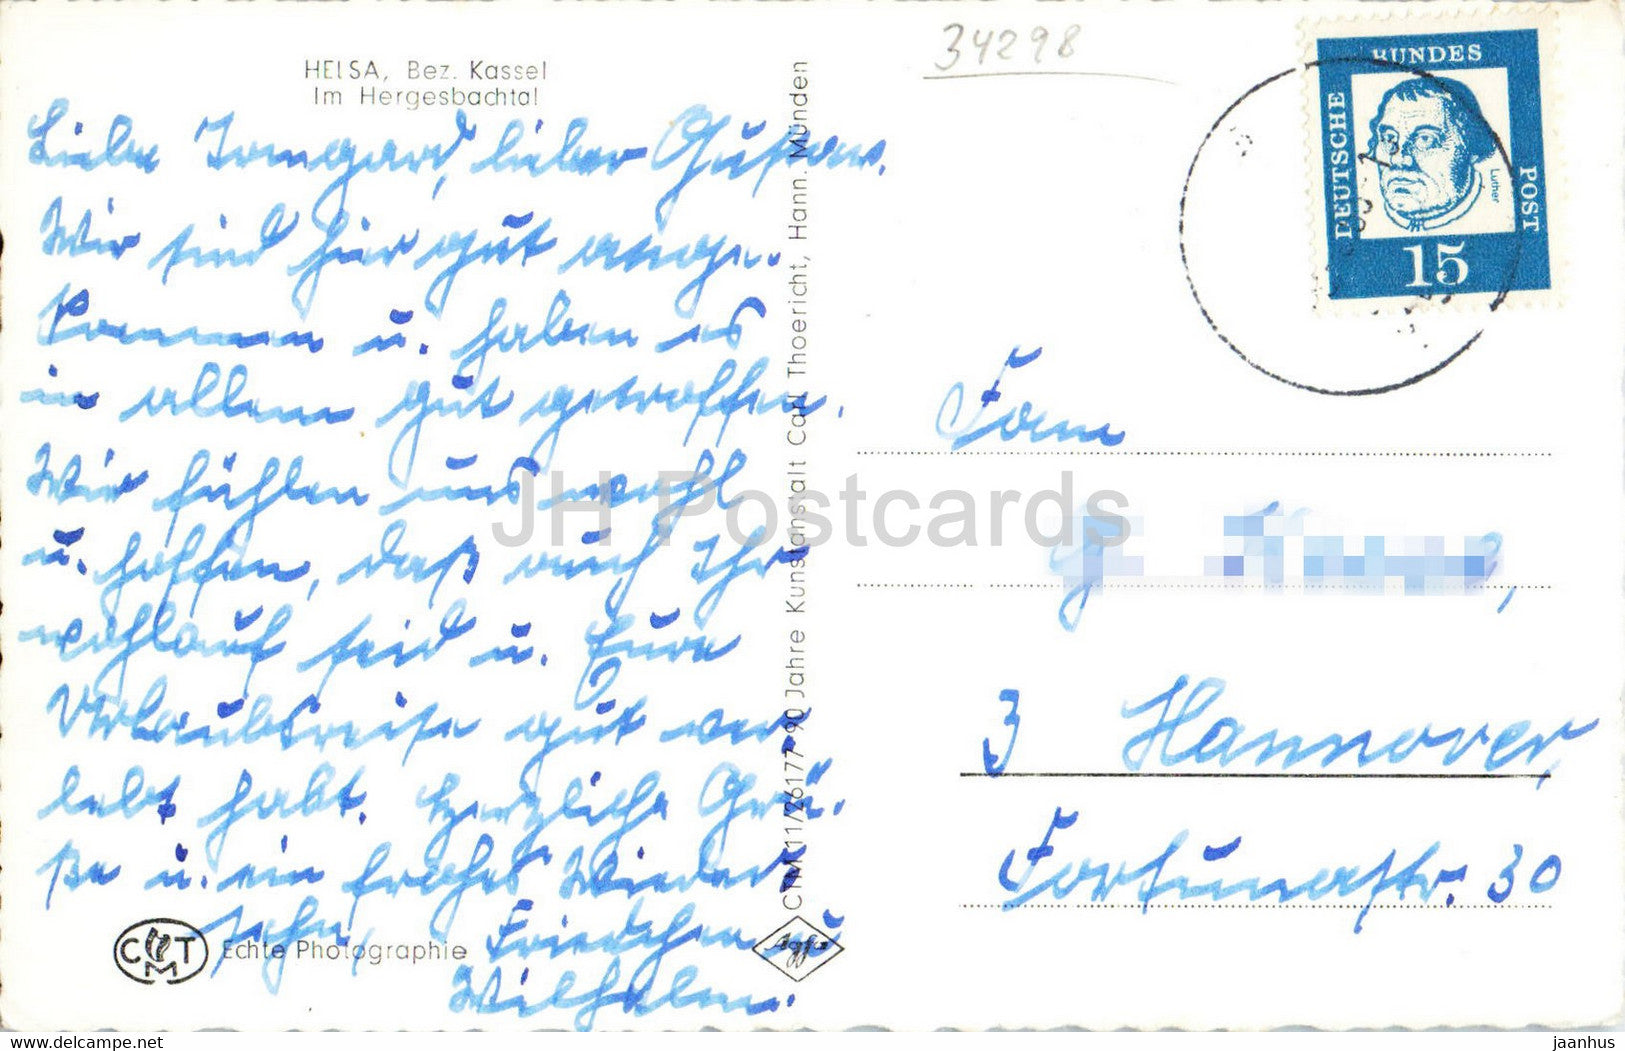 34298
HELSA, Bez. Kassel
Im Hergesbachtal
Liebe Irmgard, lieber Gustav.
Wir sind hier gut ange-
kommen u. haben es
in allem gut getroffen.
Wir fühlen uns wohl
u. hoffen, daß auch Ihr
wohlauf seid u. Eure
Urlaubsreise gut ver
lebt habt. Herzliche Grü-
ße u. ein frohes Wieder
sehn, Friedchen u
Wilhelm.
CMT Echte Photographie
Agfa
CTM 11/26177 90 Jahre Kunstanstalt Carl Thoericht, Hann. Münden
DEUTSCHE BUNDES POST
Luther
15
Fam
G.
3 Hannover,
Fortunastr. 30
JH Postcards
delcampe.net
jaanhus